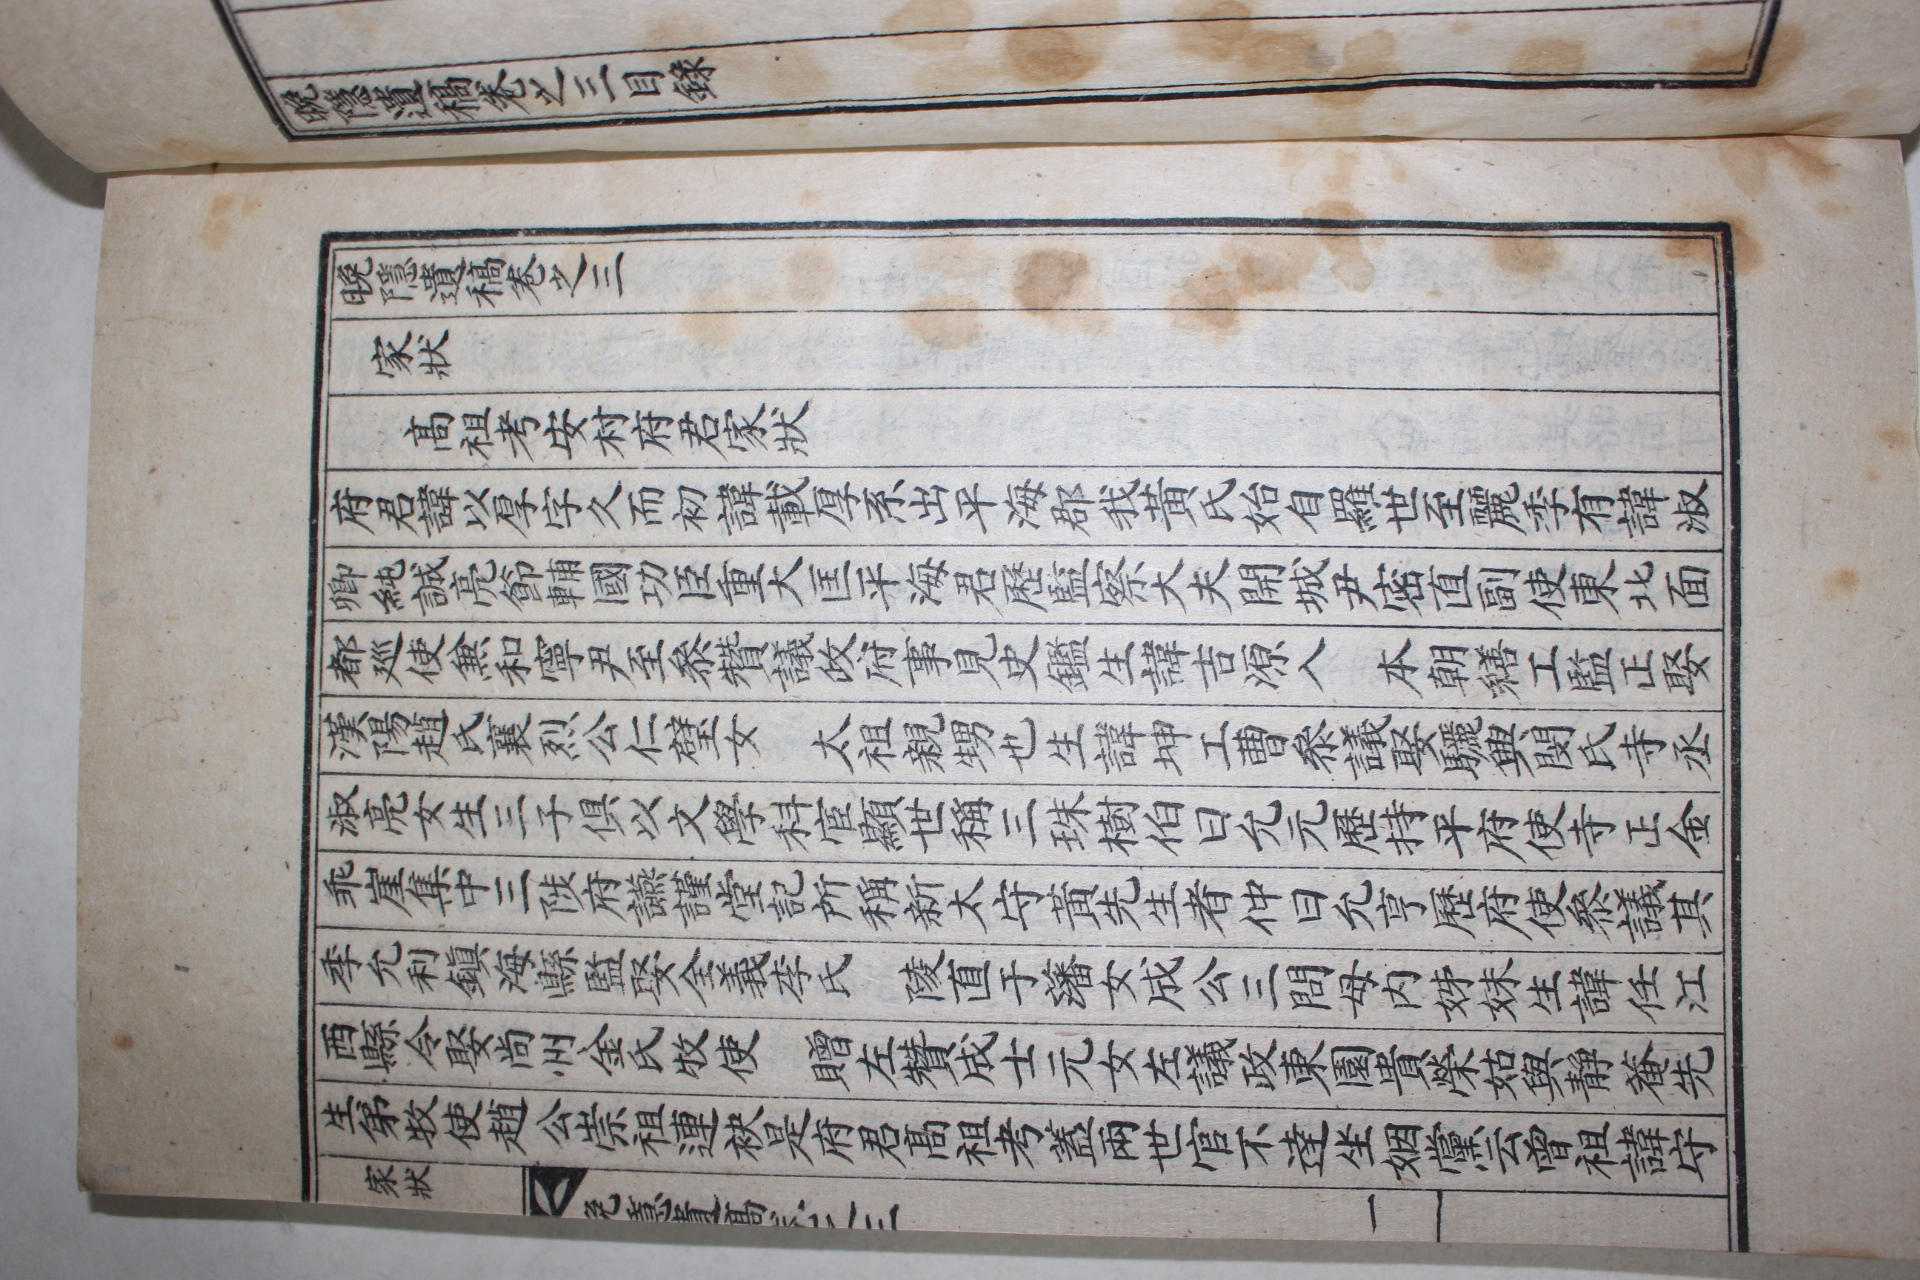 晩隱遺稿卷之三目錄
晩隱遺稿卷之三
家狀
高祖考安村府君家狀
府君諱以厚字久而初諱載厚系出平海郡我黃氏始自羅世至麗季有諱淑
卿純誠亮節輔國功臣重大匡平海君歷監察大夫開城尹密直副使東北面
都廵使兼和寧尹至叅贊議政府事見史鑑生諱吉源入　本朝繕工監正娶
漢陽趙氏襄烈公仁璧女　太祖親甥也生諱坤工曹叅議娶驪興閔氏寺丞
淑亮女生三子俱以文學科宦顯世稱三珠樹伯曰允元歷持平府使寺正金
乖崖集中三陟府讌謹堂記所稱新太守黃先生者仲曰允亨歷府使叅議其
季允利鎭海縣監娶全義李氏　陵直于藩女成公三問母內姊妹生諱任江
西縣令娶尙州金氏牧使　贈左贊成士元女左議政東園貴榮姑與靜菴先
生第牧使趙公崇祖連袂是府君高祖考蓋兩世官不達坐姻黨云曾祖諱守
家狀
晩隱遺稿卷之三
一